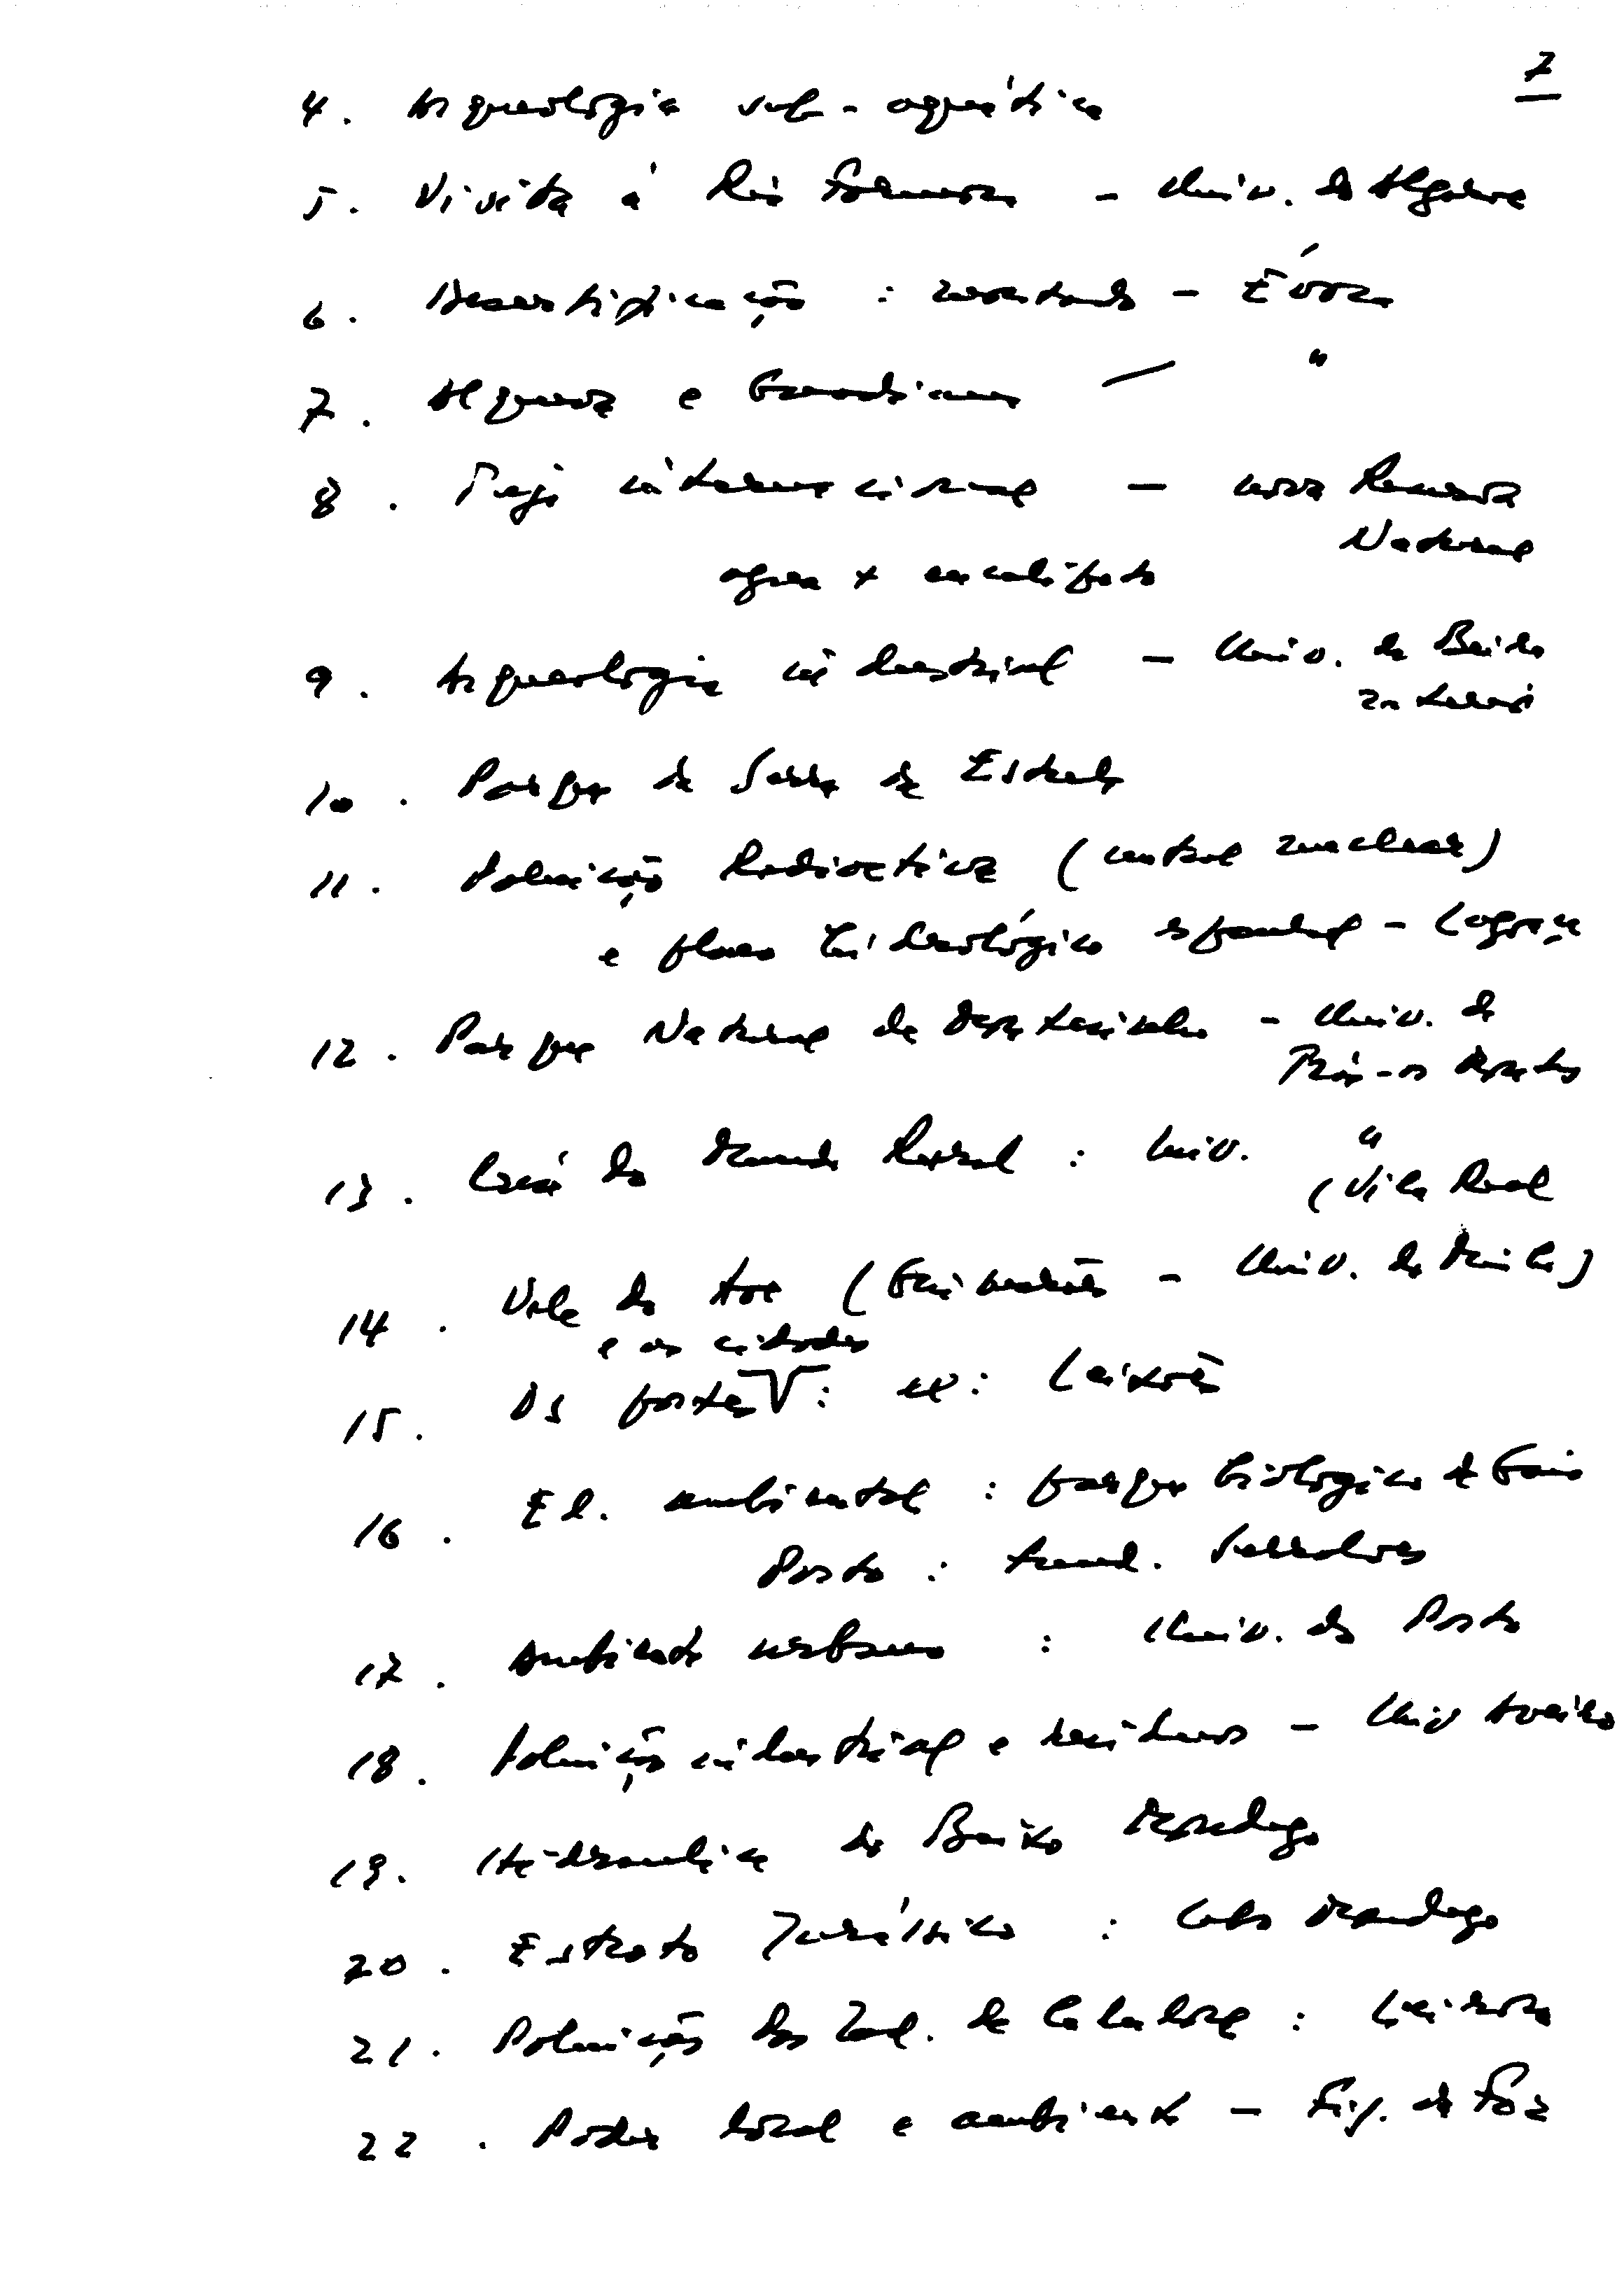 7
4. Arqueologia sub-aquática
5. Visita à Ria Formosa - Univ. do Algarve
6. Desertificação : montado - Évora
7. Alqueva e Guadiana - "
8. Tejo internacional - uma Reserva
Natural
água x eucalipto
9. Arqueologia industrial - Univ. da Beira
Interior
10. Parque da Serra da Estrela
11. Poluição Radioactiva (central nuclear)
e plano hidrológico espanhol -
12. Parque Natural de Montesinho - Univ. de
Trás-os Montes
13. do Mundo Rural : Univ. "
(Vila Real
14. Vale do Ave (Guimarães - Univ. do Minho)
e as cidades
15. Os portos : ex: Leixões
16. Ed. ambiental : parque biológico de Gaia
Porto : Fund. Serralves
17. Ambiente urbano : Univ. do Porto
18. Poluição industrial e resíduos - Univ Aveiro
19. Hidraulica do Baixo Mondego
20. Estrato Jurássico : Cabo Mondego
21. Poluição das de : Leirosa
22. Poder local e ambiente - Fig. da Foz